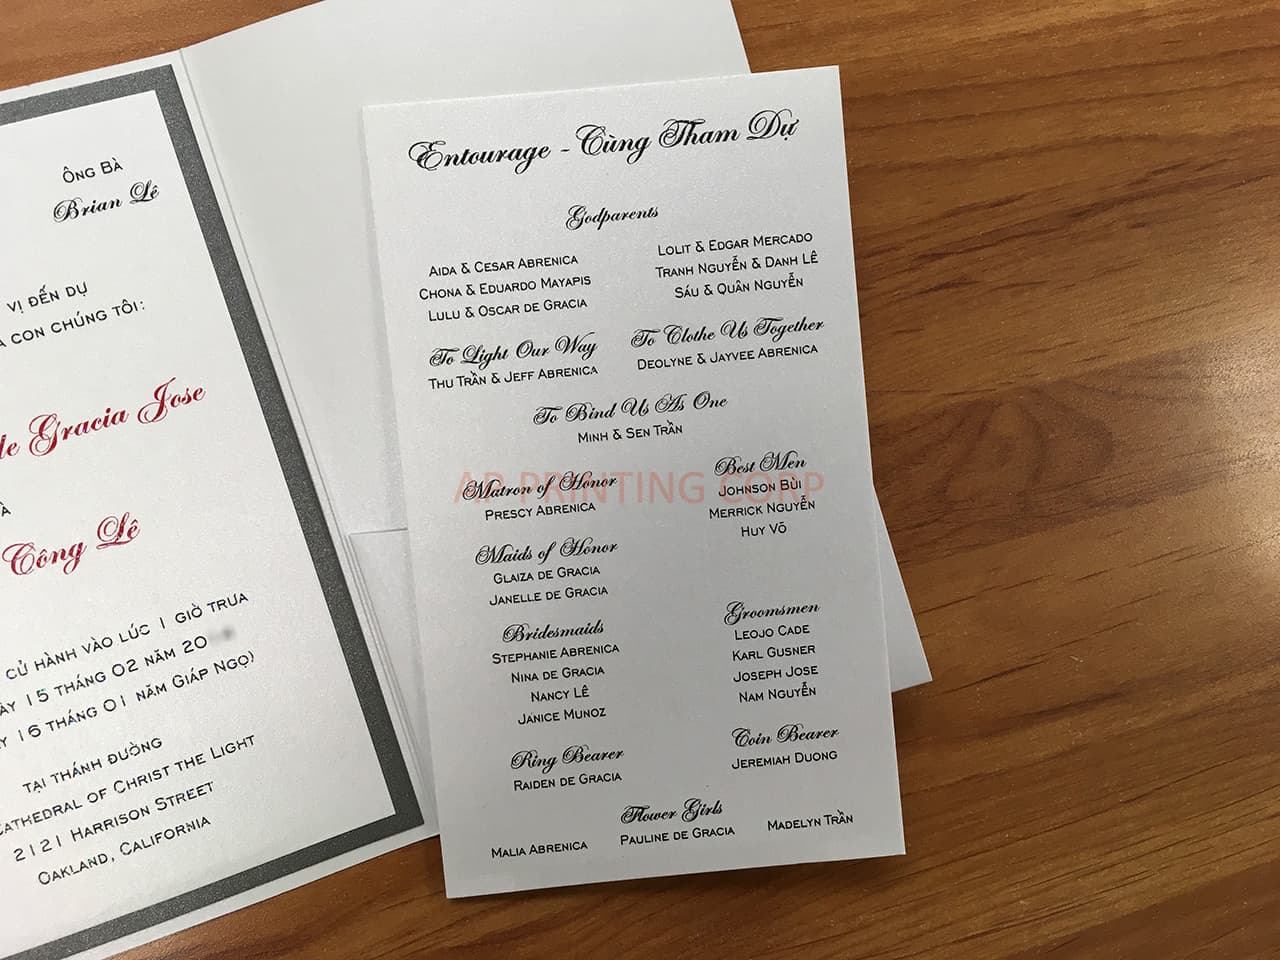 Ông Bà
Brian Lê
vị đến dự
con chúng tôi:
de Gracia Jose
Công Lê
cử hành vào lúc 1 giờ trưa
15 tháng 02 năm 20
16 tháng 01 năm Giáp Ngọ)
Tại Thánh Đường
Cathedral of Christ the Light
2121 Harrison Street
Oakland, California
Entourage - Cùng Tham Dự
Godparents
Aida & Cesar Abrenica
Chona & Eduardo Mayapis
Lulu & Oscar de Gracia
Lolit & Edgar Mercado
Tranh Nguyễn & Danh Lê
Sáu & Quân Nguyễn
To Light Our Way
Thu Trần & Jeff Abrenica
To Clothe Us Together
Deolyne & Jayvee Abrenica
To Bind Us As One
Minh & Sen Trần
AP PRINTING CORP
Matron of Honor
Prescy Abrenica
Best Men
Johnson Bùi
Merrick Nguyễn
Huy Võ
Maids of Honor
Glaiza de Gracia
Janelle de Gracia
Bridesmaids
Stephanie Abrenica
Nina de Gracia
Nancy Lê
Janice Munoz
Groomsmen
Leojo Cade
Karl Gusner
Joseph Jose
Nam Nguyễn
Ring Bearer
Raiden de Gracia
Coin Bearer
Jeremiah Duong
Flower Girls
Malia Abrenica
Pauline de Gracia
Madelyn Trần